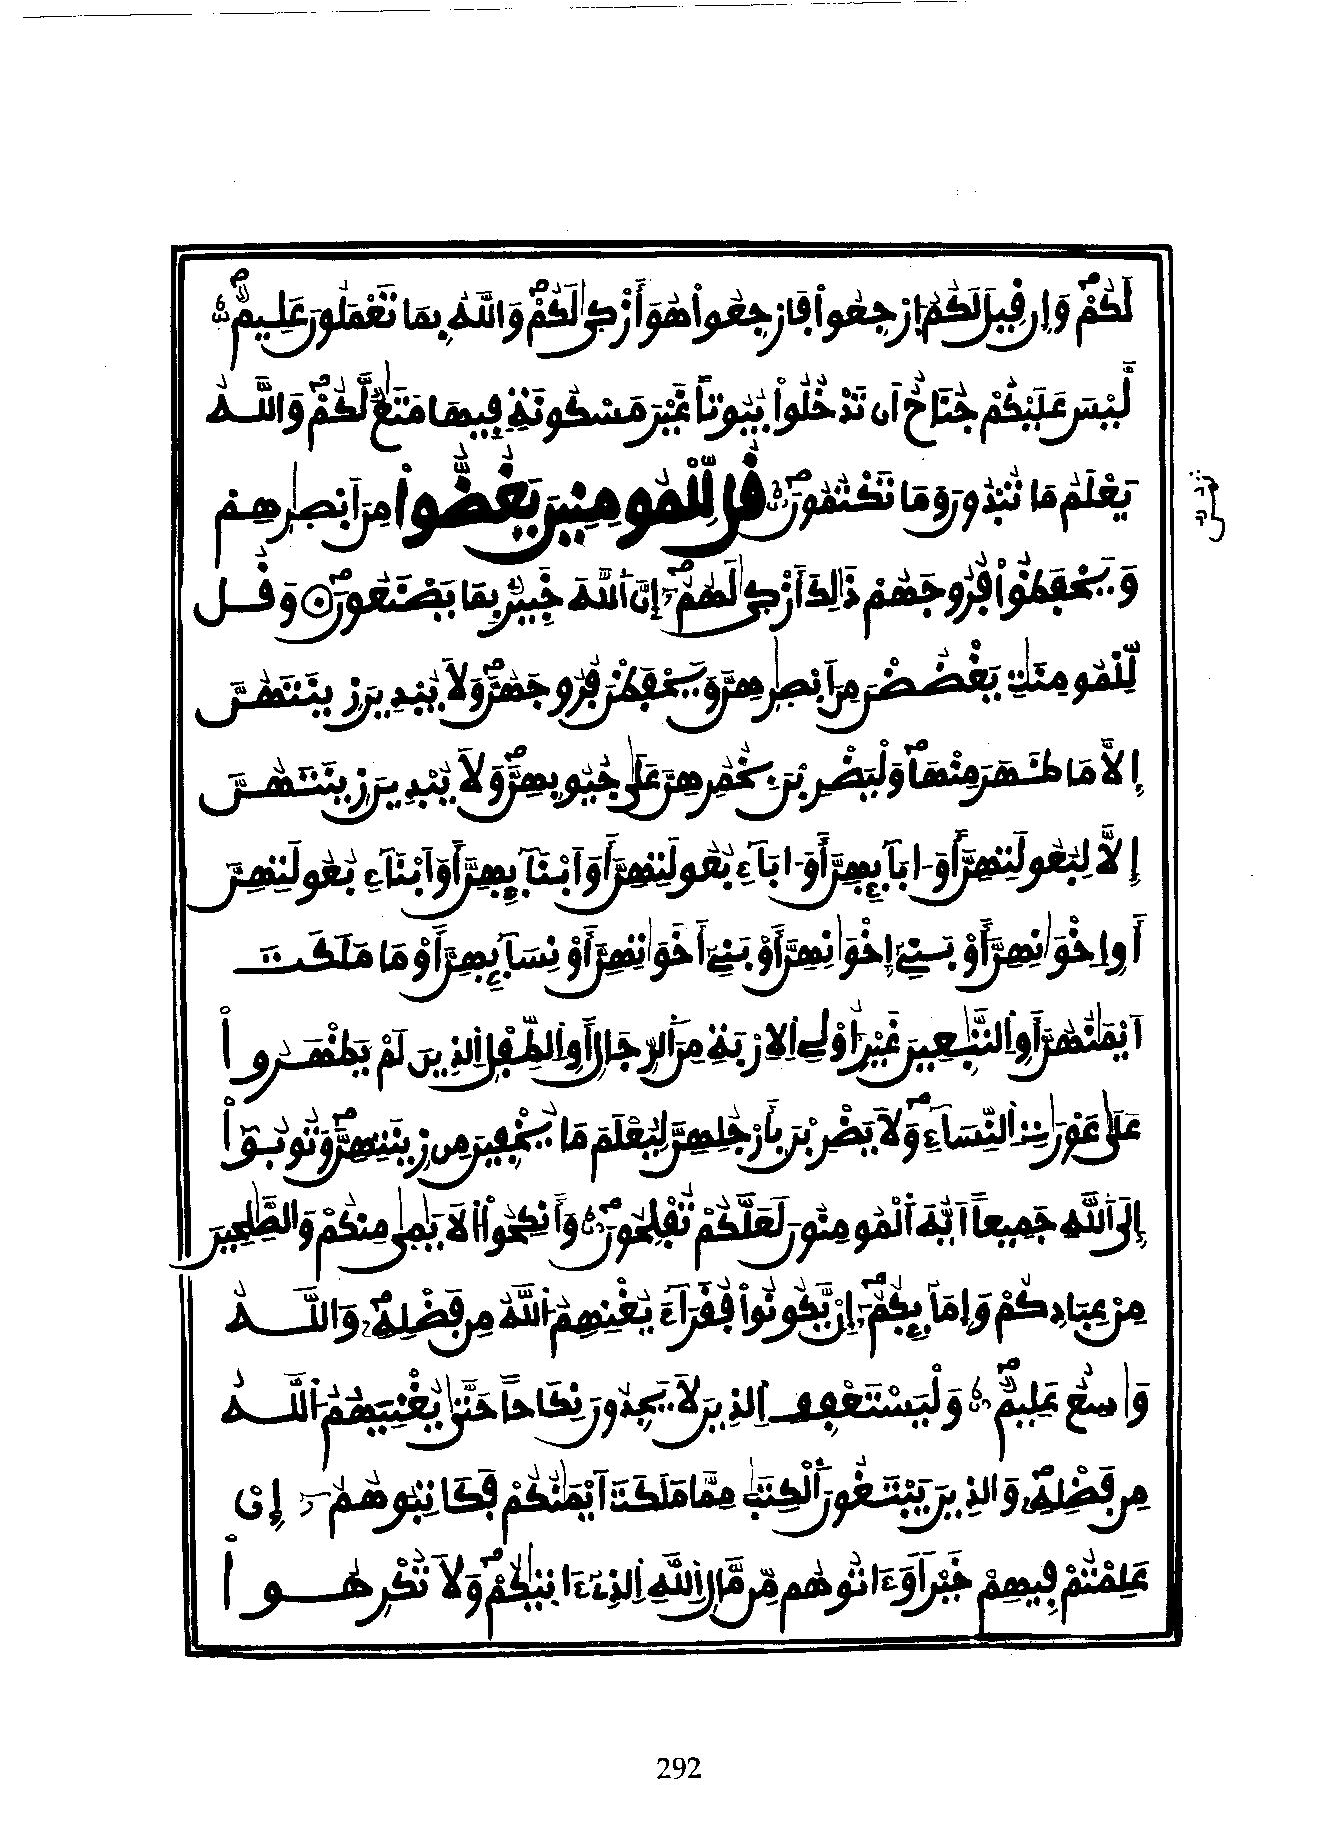 لَكُمْ وَإِن قِيلَ لَكُمُ اُرْجِعُواْ فَارْجِعُواْ هُوَ أَزْكَىٰ لَكُمْ وَاللَّهُ بِمَا تَعْمَلُونَ عَلِيمٌ
لَّيْسَ عَلَيْكُمْ جُنَاحٌ اَن تَدْخُلُواْ بُيُوتاً غَيْرَ مَسْكُونَةٍ فِيهَا مَتَٰعٌ لَّكُمْ وَاللَّهُ
يَعْلَمُ مَا تُبْدُونَ وَمَا تَكْتُمُونَ قُل لِّلْمُومِنِينَ يَغُضُّواْ مِنَ اَبْصٰرِهِمْ
وَيَحْفَظُواْ فُرُوجَهُمْ ذَٰلِكَ أَزْكَىٰ لَهُمْ إِنَّ اَللَّهَ خَبِيرٌ بِمَا يَصْنَعُونَ وَقُل
لِّلْمُومِنَٰتِ يَغْضُضْنَ مِنَ اَبْصٰرِهِنَّ وَيَحْفَظْنَ فُرُوجَهُنَّ وَلَا يُبْدِينَ زِينَتَهُنَّ
إِلَّا مَا ظَهَرَ مِنْهَا وَلْيَضْرِبْنَ بِخُمُرِهِنَّ عَلَىٰ جُيُوبِهِنَّ وَلَا يُبْدِينَ زِينَتَهُنَّ
إِلَّا لِبُعُولَتِهِنَّ أَوَ اٰبَآئِهِنَّ أَوَ اٰبَآءِ بُعُولَتِهِنَّ أَوَ اَبْنَآئِهِنَّ أَوَ اَبْنَآءِ بُعُولَتِهِنَّ
أَوِ اِخْوَٰنِهِنَّ أَوْ بَنِےٓ إِخْوَٰنِهِنَّ أَوْ بَنِےٓ أَخَوَٰتِهِنَّ أَوْ نِسَآئِهِنَّ أَوْ مَا مَلَكَتَ
اَيْمَٰنُهُنَّ أَوِ اِلتَّٰبِعِينَ غَيْرِ أُوْلِے اِلِارْبَةِ مِنَ اَلرِّجَالِ أَوِ اِلطِّفْلِ اِلذِينَ لَمْ يَظْهَرُواْ
عَلَىٰ عَوْرَٰتِ اِلنِّسَآءِ وَلَا يَضْرِبْنَ بِأَرْجُلِهِنَّ لِيُعْلَمَ مَا يُخْفِينَ مِن زِينَتِهِنَّ وَتُوبُوٓاْ
إِلَى اَللَّهِ جَمِيعاً اَيُّهَ اَلْمُومِنُونَ لَعَلَّكُمْ تُفْلِحُونَ وَأَنكِحُواْ اُلَايَٰمَىٰ مِنكُمْ وَالصَّٰلِحِينَ
مِنْ عِبَادِكُمْ وَإِمَآئِكُمُ إِنْ يَّكُونُواْ فُقَرَآءَ يُغْنِهِمُ اُللَّهُ مِن فَضْلِهِ وَاللَّهُ
وَٰسِعٌ عَلِيمٌ وَلْيَسْتَعْفِفِ اِلذِينَ لَا يَجِدُونَ نِكَاحاً حَتَّىٰ يُغْنِيَهُمُ اُللَّهُ
مِن فَضْلِهِ وَالذِينَ يَبْتَغُونَ اَلْكِتَٰبَ مِمَّا مَلَكَتَ اَيْمَٰنُكُمْ فَكَاتِبُوهُمُ إِنْ
عَلِمْتُمْ فِيهِمْ خَيْراً وَءَاتُوهُم مِّن مَّالِ اِللَّهِ اِلذِےٓ ءَاتَىٰكُمْ وَلَا تُكْرِهُواْ
292